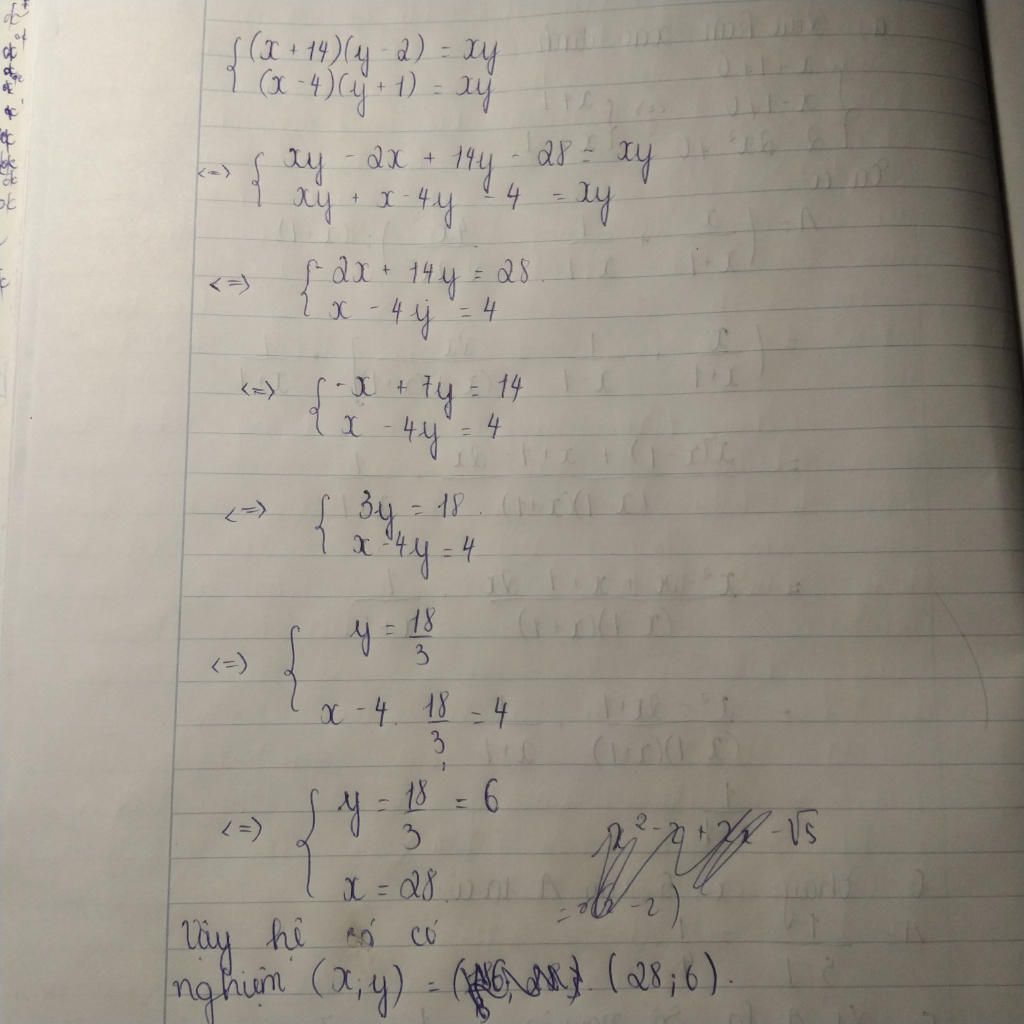 {(x + 14)(y - 2) = xy
(x - 4)(y + 1) = xy
<=> {xy - 2x + 14y - 28 = xy
xy + x - 4y - 4 = xy
<=> {-2x + 14y = 28
x - 4y = 4
<=> {-x + 7y = 14
x - 4y = 4
<=> {3y = 18
x - 4y = 4
<=> {y = 18/3
x - 4. 18/3 = 4
<=> {y = 18/3 = 6
x = 28
Vậy hệ có có
nghiệm (x, y) = (28; 6).